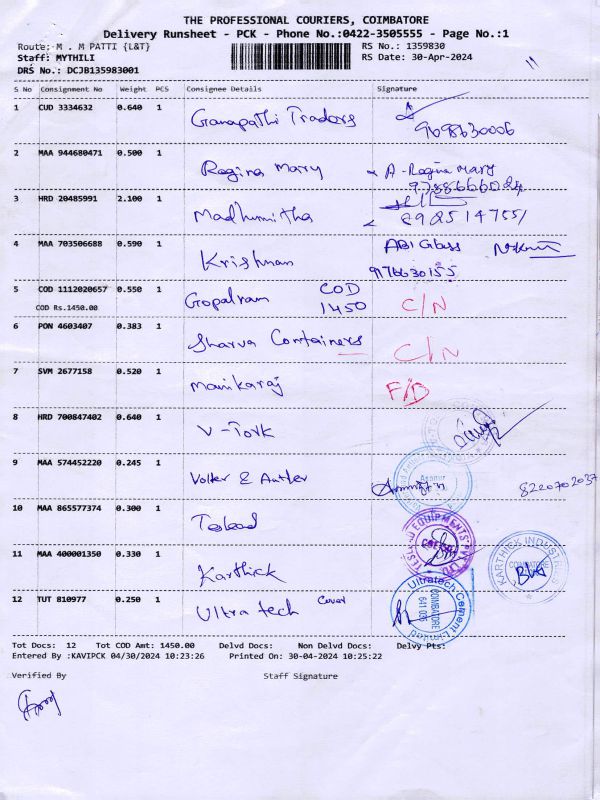 THE PROFESSIONAL COURIERS, COIMBATORE
Delivery Runsheet - PCK - Phone No.:0422-3505555 - Page No.:1
Route: M . M PATTI {L&T} RS No.: 1359830
Staff: MYTHILI RS Date: 30-Apr-2024
DRS No.: DCJB135983001
11
S No Consignment No Weight PCS Consignee Details Signature
1 CUD 3334632 0.640 1 Ganapathi Traders
9698630006
2 MAA 944680471 0.500 1 Regina Mary A-Regina Mary
3 HRD 20485991 2.100 1 Madhumitha
4 MAA 703506688 0.590 1 Krishnan ABI Glass
9176630155
5 COD 1112020657 0.550 1 Gopalram COD C/N
COD Rs.1450.00 1450
6 PON 4603407 0.383 1 Sharva Containers C/N
7 SVM 2677158 0.520 1 Manikaraj F/D
8 HRD 700847402 0.640 1 V-Tork
9 MAA 574452220 0.245 1 Volter & Antler 8220702037
10 MAA 865577374 0.300 1 Teslead
TESLEAD EQUIPMENTS PVT. LTD.
11 MAA 400001350 0.330 1 Karthick
KARTHICK INDUSTRIES
COIMBATORE
12 TUT 810977 0.250 1 Ultra tech Cover
Ultratech Cement Limited
COIMBATORE
Tot Docs: 12 Tot COD Amt: 1450.00 Delvd Docs: Non Delvd Docs: Delvy Pts:
Entered By :KAVIPCK 04/30/2024 10:23:26 Printed On: 30-04-2024 10:25:22
Verified By Staff Signature